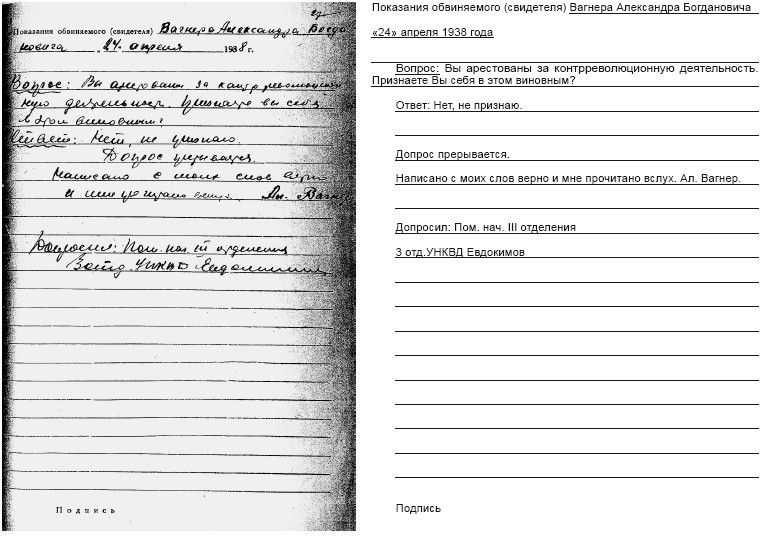 27
Показания обвиняемого (свидетеля) Вагнера Александра Богда
новича „24" апреля 1938 г.
Вопрос: Вы арестованы за контрреволюцион
ную деятельность. Признаете вы себя
в этом виновным?
Ответ: Нет, не признаю.
Допрос прерывается.
Написано с моих слов верно
и мне прочитано вслух. Ал. Вагнер
Допросил: Пом. нач. III отделения
3 отд. УНКВД Евдокимов
Подпись
Показания обвиняемого (свидетеля) Вагнера Александра Богдановича
«24» апреля 1938 года
Вопрос: Вы арестованы за контрреволюционную деятельность.
Признаете Вы себя в этом виновным?
Ответ: Нет, не признаю.
Допрос прерывается.
Написано с моих слов верно и мне прочитано вслух. Ал. Вагнер.
Допросил: Пом. нач. III отделения
3 отд.УНКВД Евдокимов
Подпись